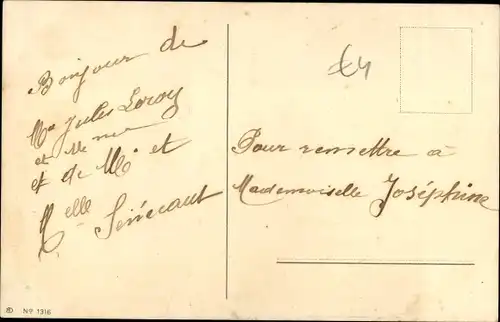 Bonjour de
Mr Jules Leroy
et Me
et de Mr et
Melle Sénécaut
£4
Pour remettre à
Mademoiselle Joséphine
No 1316